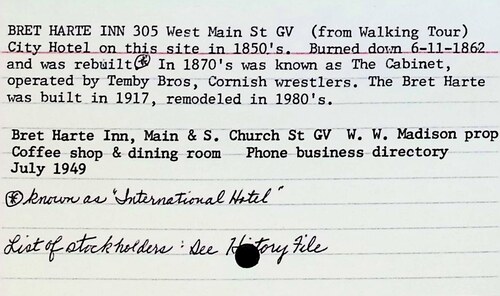 BRET HARTE INN 305 West Main St GV (from Walking Tour)
City Hotel on this site in 1850's. Burned down 6-11-1862
and was rebuilt(*) In 1870's was known as The Cabinet,
operated by Temby Bros, Cornish wrestlers. The Bret Harte
was built in 1917, remodeled in 1980's.
Bret Harte Inn, Main & S. Church St GV W. W. Madison prop
Coffee shop & dining room Phone business directory
July 1949
(*) known as "International Hotel"
List of stockholders : See History File